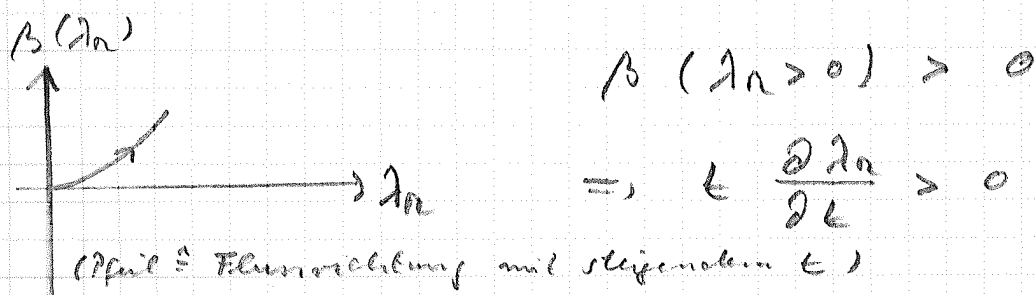 β(λ_R)
β (λ_R > 0) > 0
λ_R
=> t ∂λ_R/∂t > 0
(Pfeil ≙ Flussrichtung mit steigendem t)